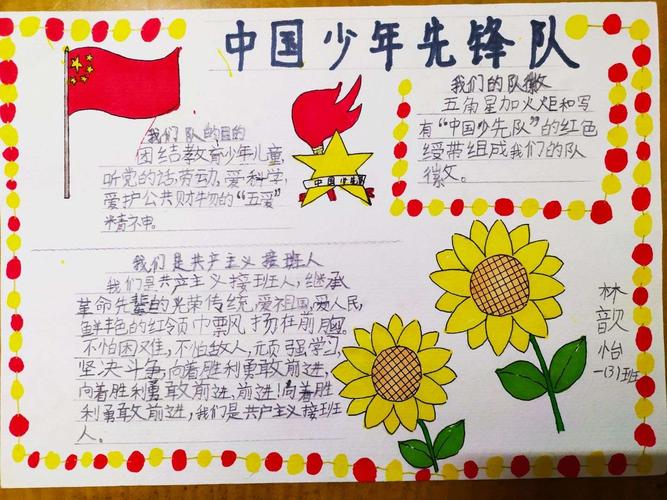 中国少年先锋队
我们队的目的
团结教育少年儿童,
听党的话劳动,爱科学,
爱护公共财物的“五爱”
精神.
中国少年先
我们的队徽
五角星加火炬和写
有“中国少先队”的红色
绶带组成我们的队
徽.
我们是共产主义接班人
我们是共产主义接班人,继承
革命先辈的光荣传统,爱祖国,爱人民,
鲜艳的红领巾飘扬在前胸,
不怕困难,不怕敌人,顽强学习,
坚决斗争,向着胜利勇敢前进,
向着胜利勇敢前进,前进!向着胜
利勇敢前进,我们是共产主义接班
人.
林
歆
怡
一(3)班